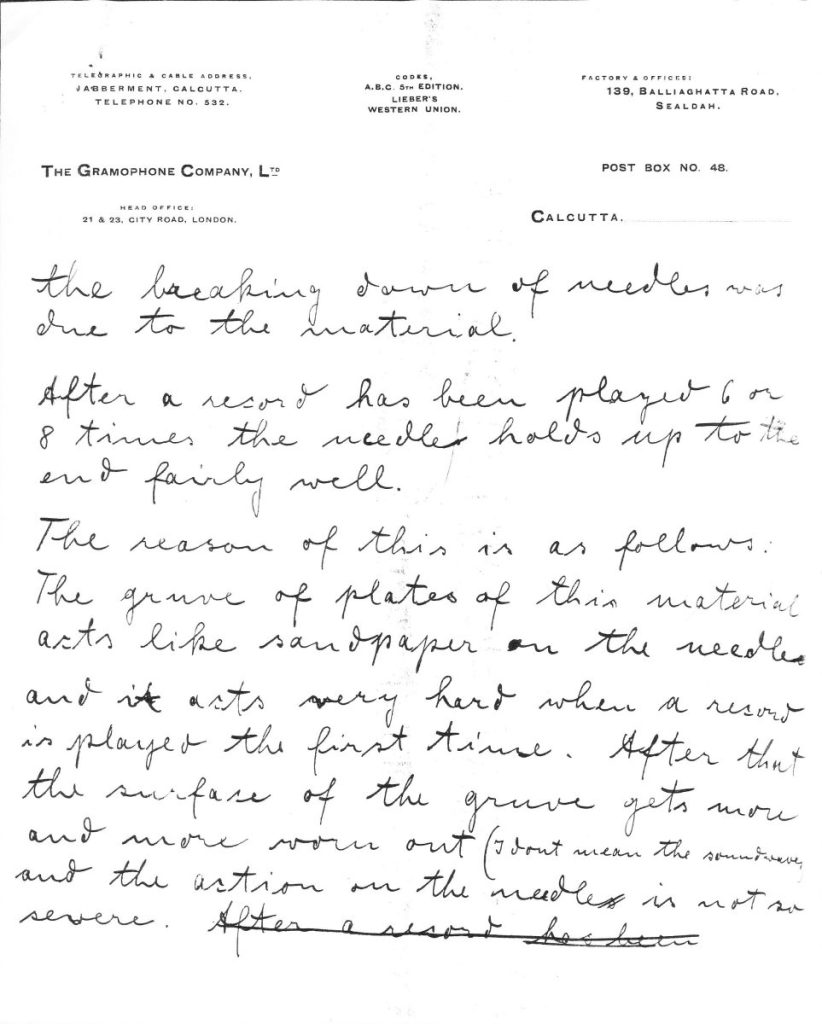 TELEGRAPHIC & CABLE ADDRESS,
JABBERMENT, CALCUTTA.
TELEPHONE NO. 532.
CODES,
A.B.C. 5TH EDITION.
LIEBER'S
WESTERN UNION.
FACTORY & OFFICES:
139, BALLIAGHATTA ROAD,
SEALDAH.
THE GRAMOPHONE COMPANY, LTD
HEAD OFFICE:
21 & 23, CITY ROAD, LONDON.
POST BOX NO. 48.
CALCUTTA.
the breaking down of needles was
due to the material.
After a record has been played 6 or
8 times the needle holds up to the
end fairly well.
The reason of this is as follows:
The gruve of plates of this material
acts like sandpaper on the needle
and it acts very hard when a record
is played the first time. After that
the surface of the gruve gets more
and more worn out (I dont mean the soundwaves
and the action on the needle is not so
severe. After a record has been